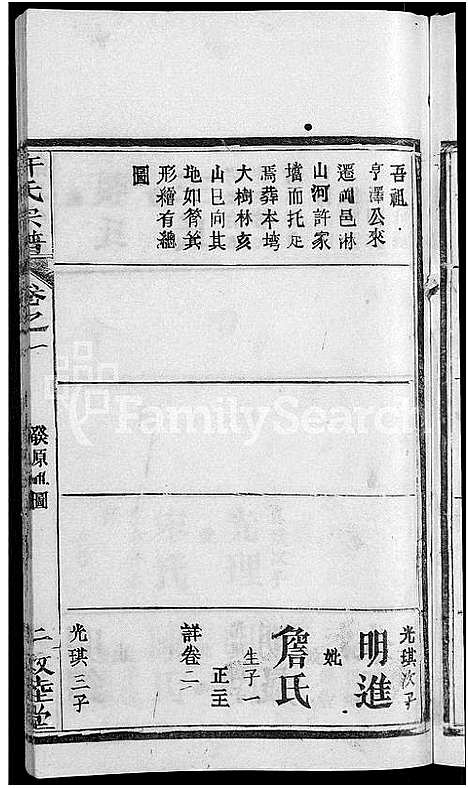 吾祖
亨澤公來
遷 邑淋
山河許家
壋而托足
焉葬本塆
大樹林亥
山巳向其
地如筲箕
形繪有總
圖
光琪次子
明進
妣
詹氏
生子一
正主
詳卷二
光琪三子
許氏宗譜
卷之一
原 圖
二 敦睦堂
FamilySearch